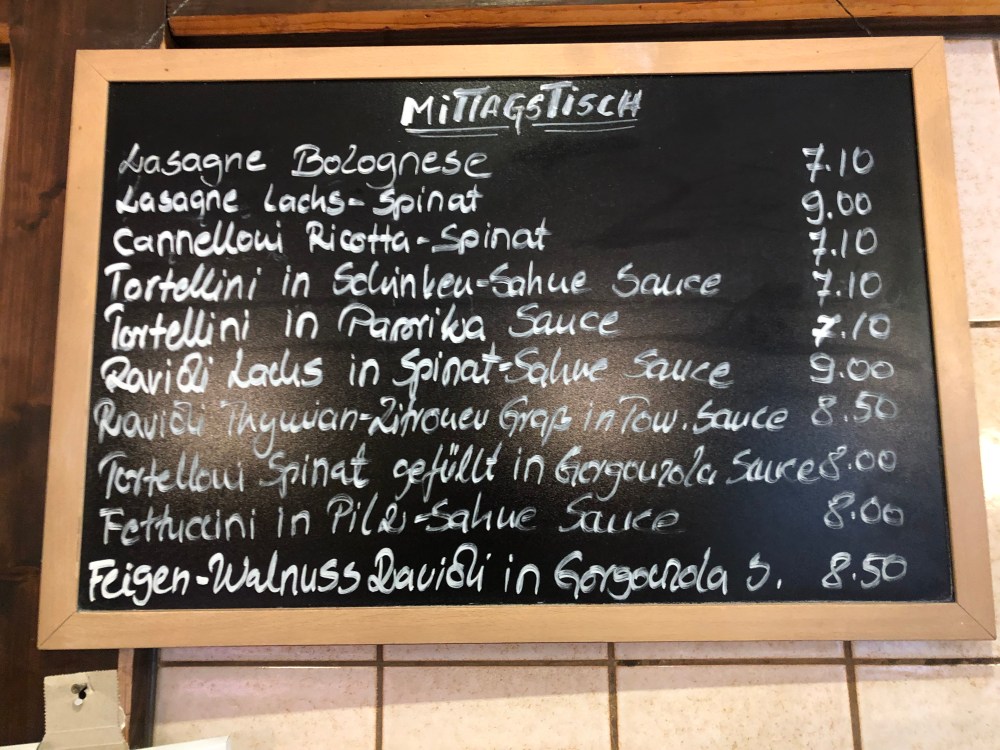 MiTTAGSTiSCH
Lasagne Bolognese 7.10
Lasagne Lachs-Spinat 9.00
Cannelloni Ricotta-Spinat 7.10
Tortellini in Schinken-Sahne Sauce 7.10
Tortellini in Paprika Sauce 7.10
Ravioli Lachs in Spinat-Sahne Sauce 9.00
Ravioli Thymian-Zitronen in Tom. Sauce 8.50
Tortelloni Spinat gefüllt in Gorgonzola Sauce 8.00
Fettuccini in Pilz-Sahne Sauce 8.00
Feigen-Walnuss Ravioli in Gorgonzola S. 8.50